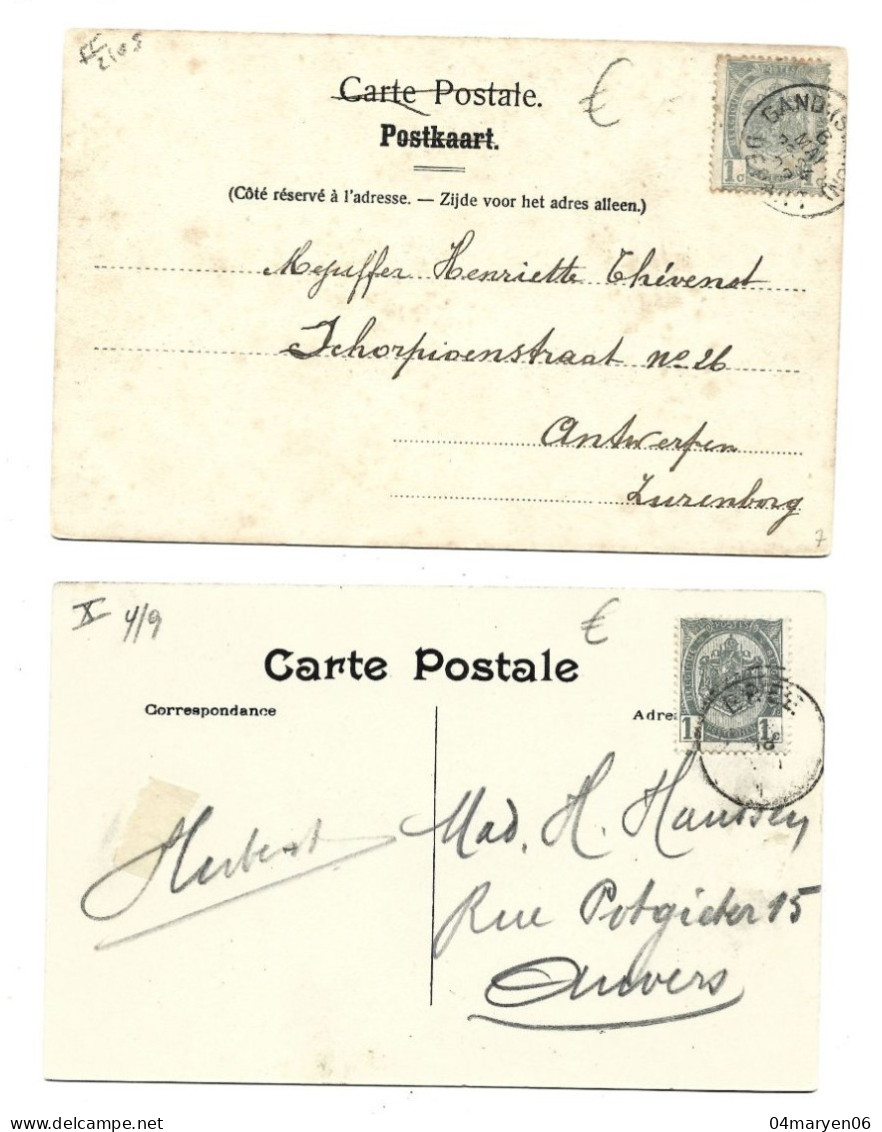 Carte Postale.
Postkaart.
(Côté réservé à l'adresse. — Zijde voor het adres alleen.)
GAND (S
DÉP
6
MAI
1c
Mejuffer Henriette Thévenet
Schorpioenstraat no 26
Antwerpen
Zurenborg
7
X 4/9
€
€
Carte Postale
Correspondance
Adre
1 1c
18
Herbert
Mad. H. Haussey
Rue Potgieter 15
Anvers
04maryen06